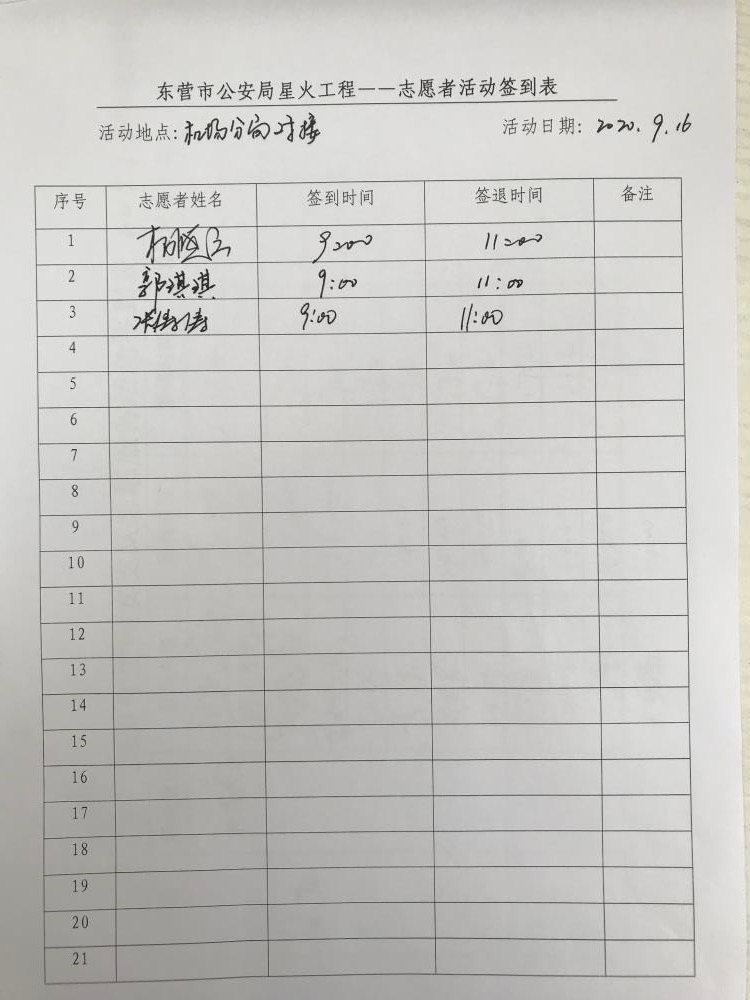 东营市公安局星火工程——志愿者活动签到表
活动地点:机场分局对接 活动日期: 2020.9.16
序号 志愿者姓名 签到时间 签退时间 备注
1 9:00 11:00
2 郭琪琪 9:00 11:00
3 9:00 11:00
4
5
6
7
8
9
10
11
12
13
14
15
16
17
18
19
20
21